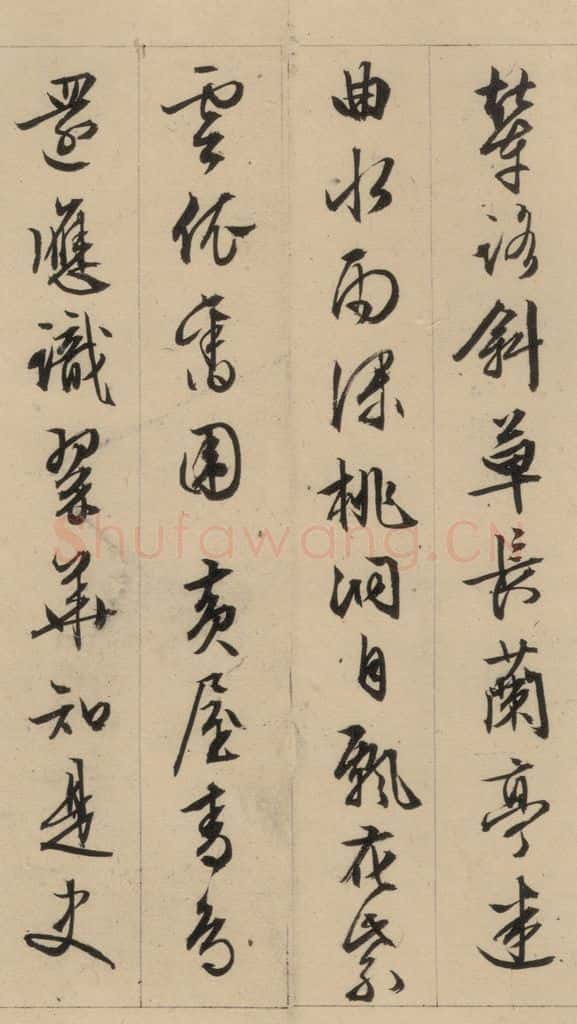 輦路斜草長蘭亭迷
曲水雨深桃洞自飄花紫
雲依舊圍黃屋青鳥
還應識翠華知是史
Shufawang.CN